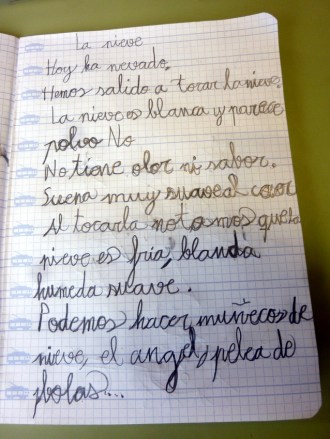 La nieve
Hoy ha nevado.
Hemos salido a tocar la nieve.
La nieve es blanca y parece
polvo No
No tiene olor ni sabor.
Suena muy suave al caer
Al tocarla notamos que la
nieve es fria, blanda
humeda suave.
Podemos hacer muñecos de
nieve, el angel, pelea de
bolas...